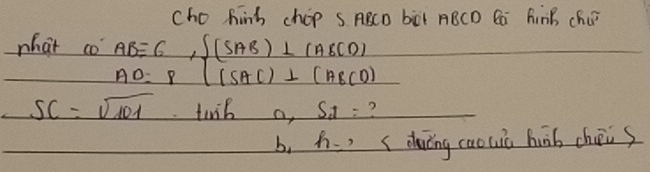 Cho hình chóp S ABCD biết ABCD là hình chữ
nhật có AB = 6 , { (SAB) ⊥ (ABCD)
AD = 8 { (SAC) ⊥ (ABCD)
SC = √101 . tính a, SA = ?
b, h = ? < đường cao của hình chiếu S